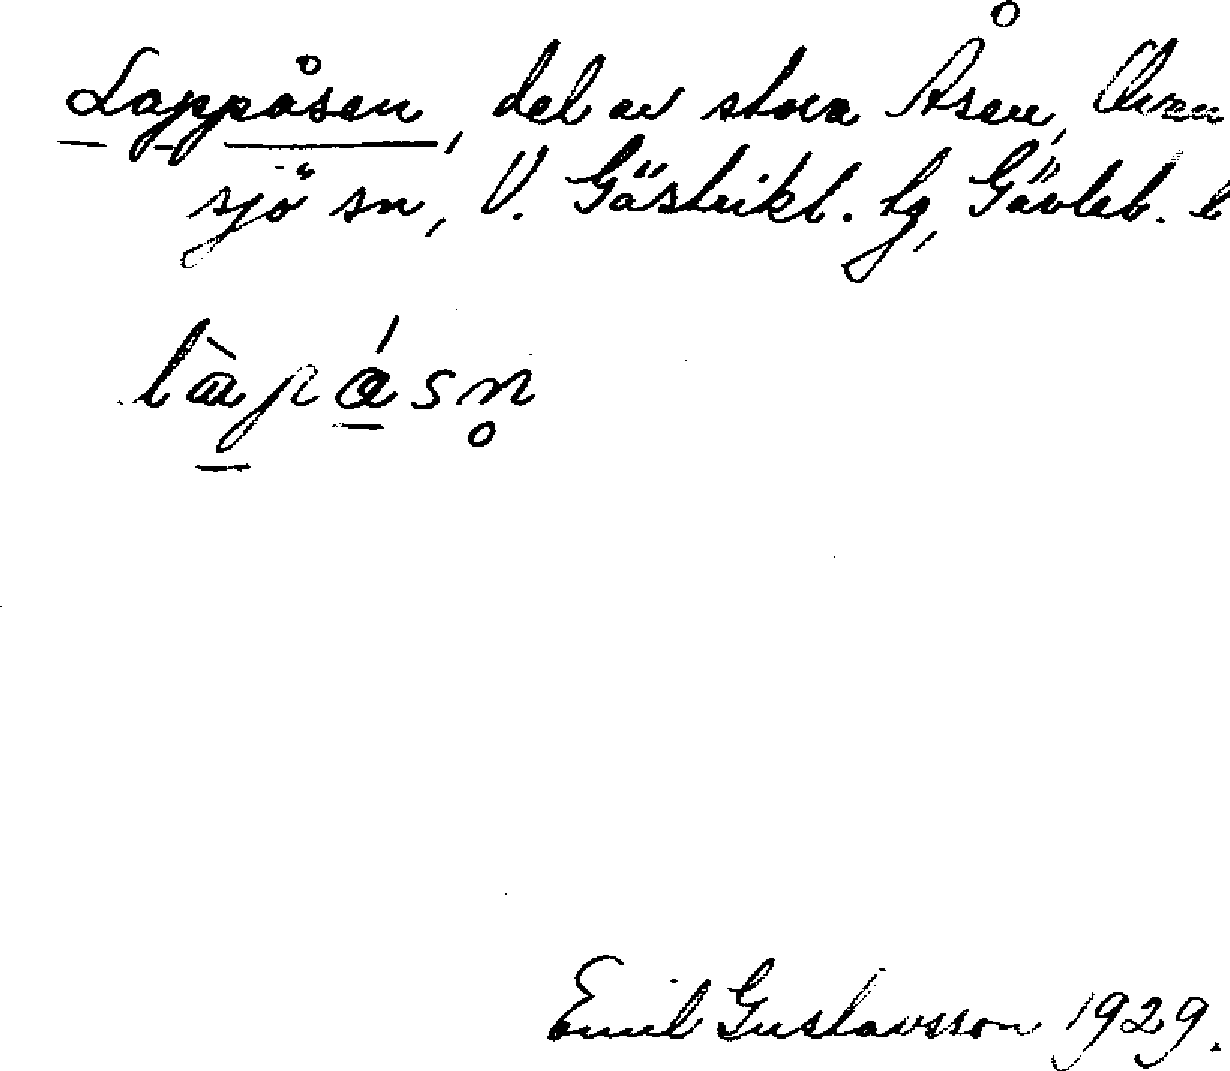 Lappåsen, del av stora Åsen, Oven
sjö sn, V. Gästrikl. tg, Gävleb. l
làpásn̥
Emil Gustavsson 1929.